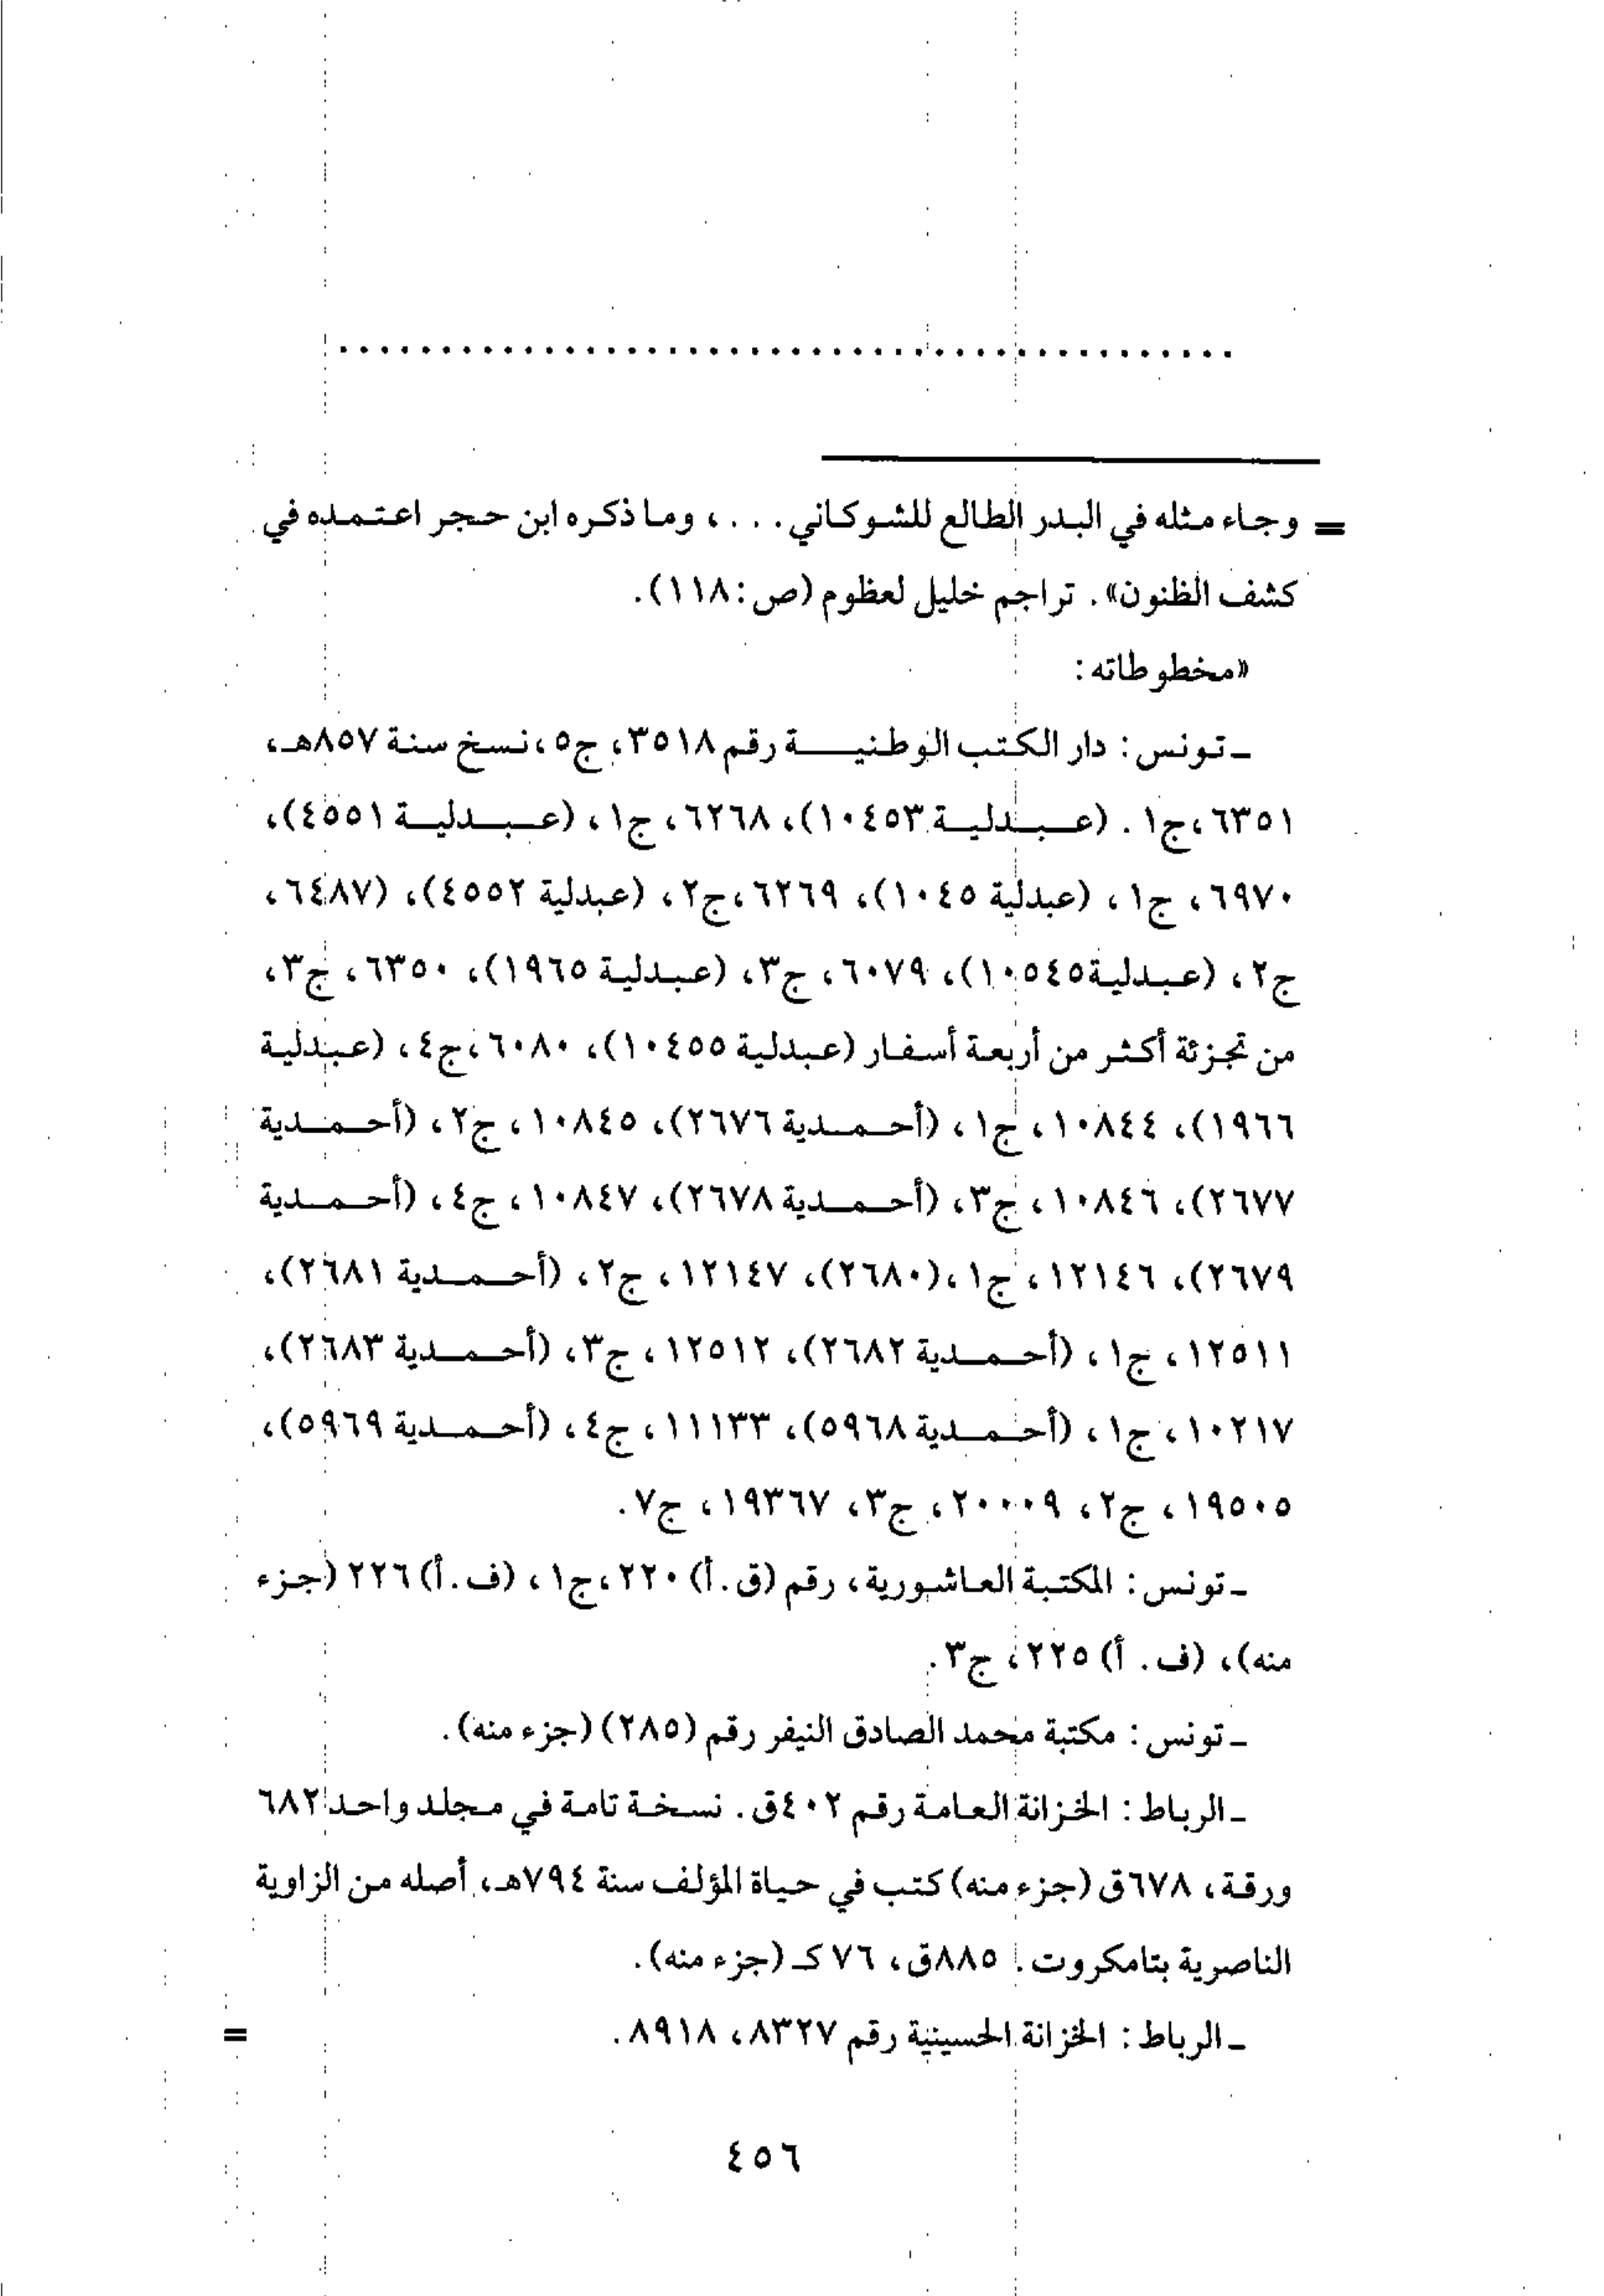 ............................................
= وجاء مثله في البدر الطالع للشوكاني . . . ، وما ذكره ابن حجر اعتمده في
كشف الظنون». تراجم خليل لعظوم (ص: ١١٨).
«مخطوطاته:
ـ تونس: دار الكتب الوطنية رقم ٣٥١٨، ج٥، نسخ سنة ٨٥٧هـ،
٦٣٥١، ج١. (عبدلية ١٠٤٥٣)، ٦٢٦٨، ج١، (عبدلية ٤٥٥١)،
٦٩٧٠، ج١، (عبدلية ١٠٤٥)، ٦٢٦٩، ج٢، (عبدلية ٤٥٥٢)، (٦٤٨٧،
ج٢، (عبدلية ١٠٥٤٥)، ٦٠٧٩، ج٣، (عبدلية ١٩٦٥)، ٦٣٥٠، ج٣،
من تجزئة أكثر من أربعة أسفار (عبدلية ١٠٤٥٥)، ٦٠٨٠، ج٤، (عبدلية
١٩٦٦)، ١٠٨٤٤، ج١، (أحمدية ٢٦٧٦)، ١٠٨٤٥، ج٢، (أحمدية
٢٦٧٧)، ١٠٨٤٦، ج٣، (أحمدية ٢٦٧٨)، ١٠٨٤٧، ج٤، (أحمدية
٢٦٧٩)، ١٢١٤٦، ج١، (٢٦٨٠)، ١٢١٤٧، ج٢، (أحمدية ٢٦٨١)،
١٢٥١١، ج١، (أحمدية ٢٦٨٢)، ١٢٥١٢، ج٣، (أحمدية ٢٦٨٣)،
١٠٢١٧، ج١، (أحمدية ٥٩٦٨)، ١١١٣٣، ج٤، (أحمدية ٥٩٦٩)،
١٩٥٠٥، ج٢، ٢٠٠٠٩، ج٣، ١٩٣٦٧، ج٧.
ـ تونس: المكتبة العاشورية، رقم (ق.أ) ٢٢٠، ج١، (ف.أ) ٢٢٦ (جزء
منه)، (ف. أ) ٢٢٥، ج٣.
ـ تونس: مكتبة محمد الصادق النيفر رقم (٢٨٥) (جزء منه).
ـ الرباط: الخزانة العامة رقم ٤٠٢ق. نسخة تامة في مجلد واحد ٦٨٢
ورقة، ٦٧٨ق (جزء منه) كتب في حياة المؤلف سنة ٧٩٤هـ، أصله من الزاوية
الناصرية بتامكروت. ٨٨٥ق، ٧٦ كـ (جزء منه).
ـ الرباط: الخزانة الحسينية رقم ٨٣٢٧، ٨٩١٨. =
٤٥٦